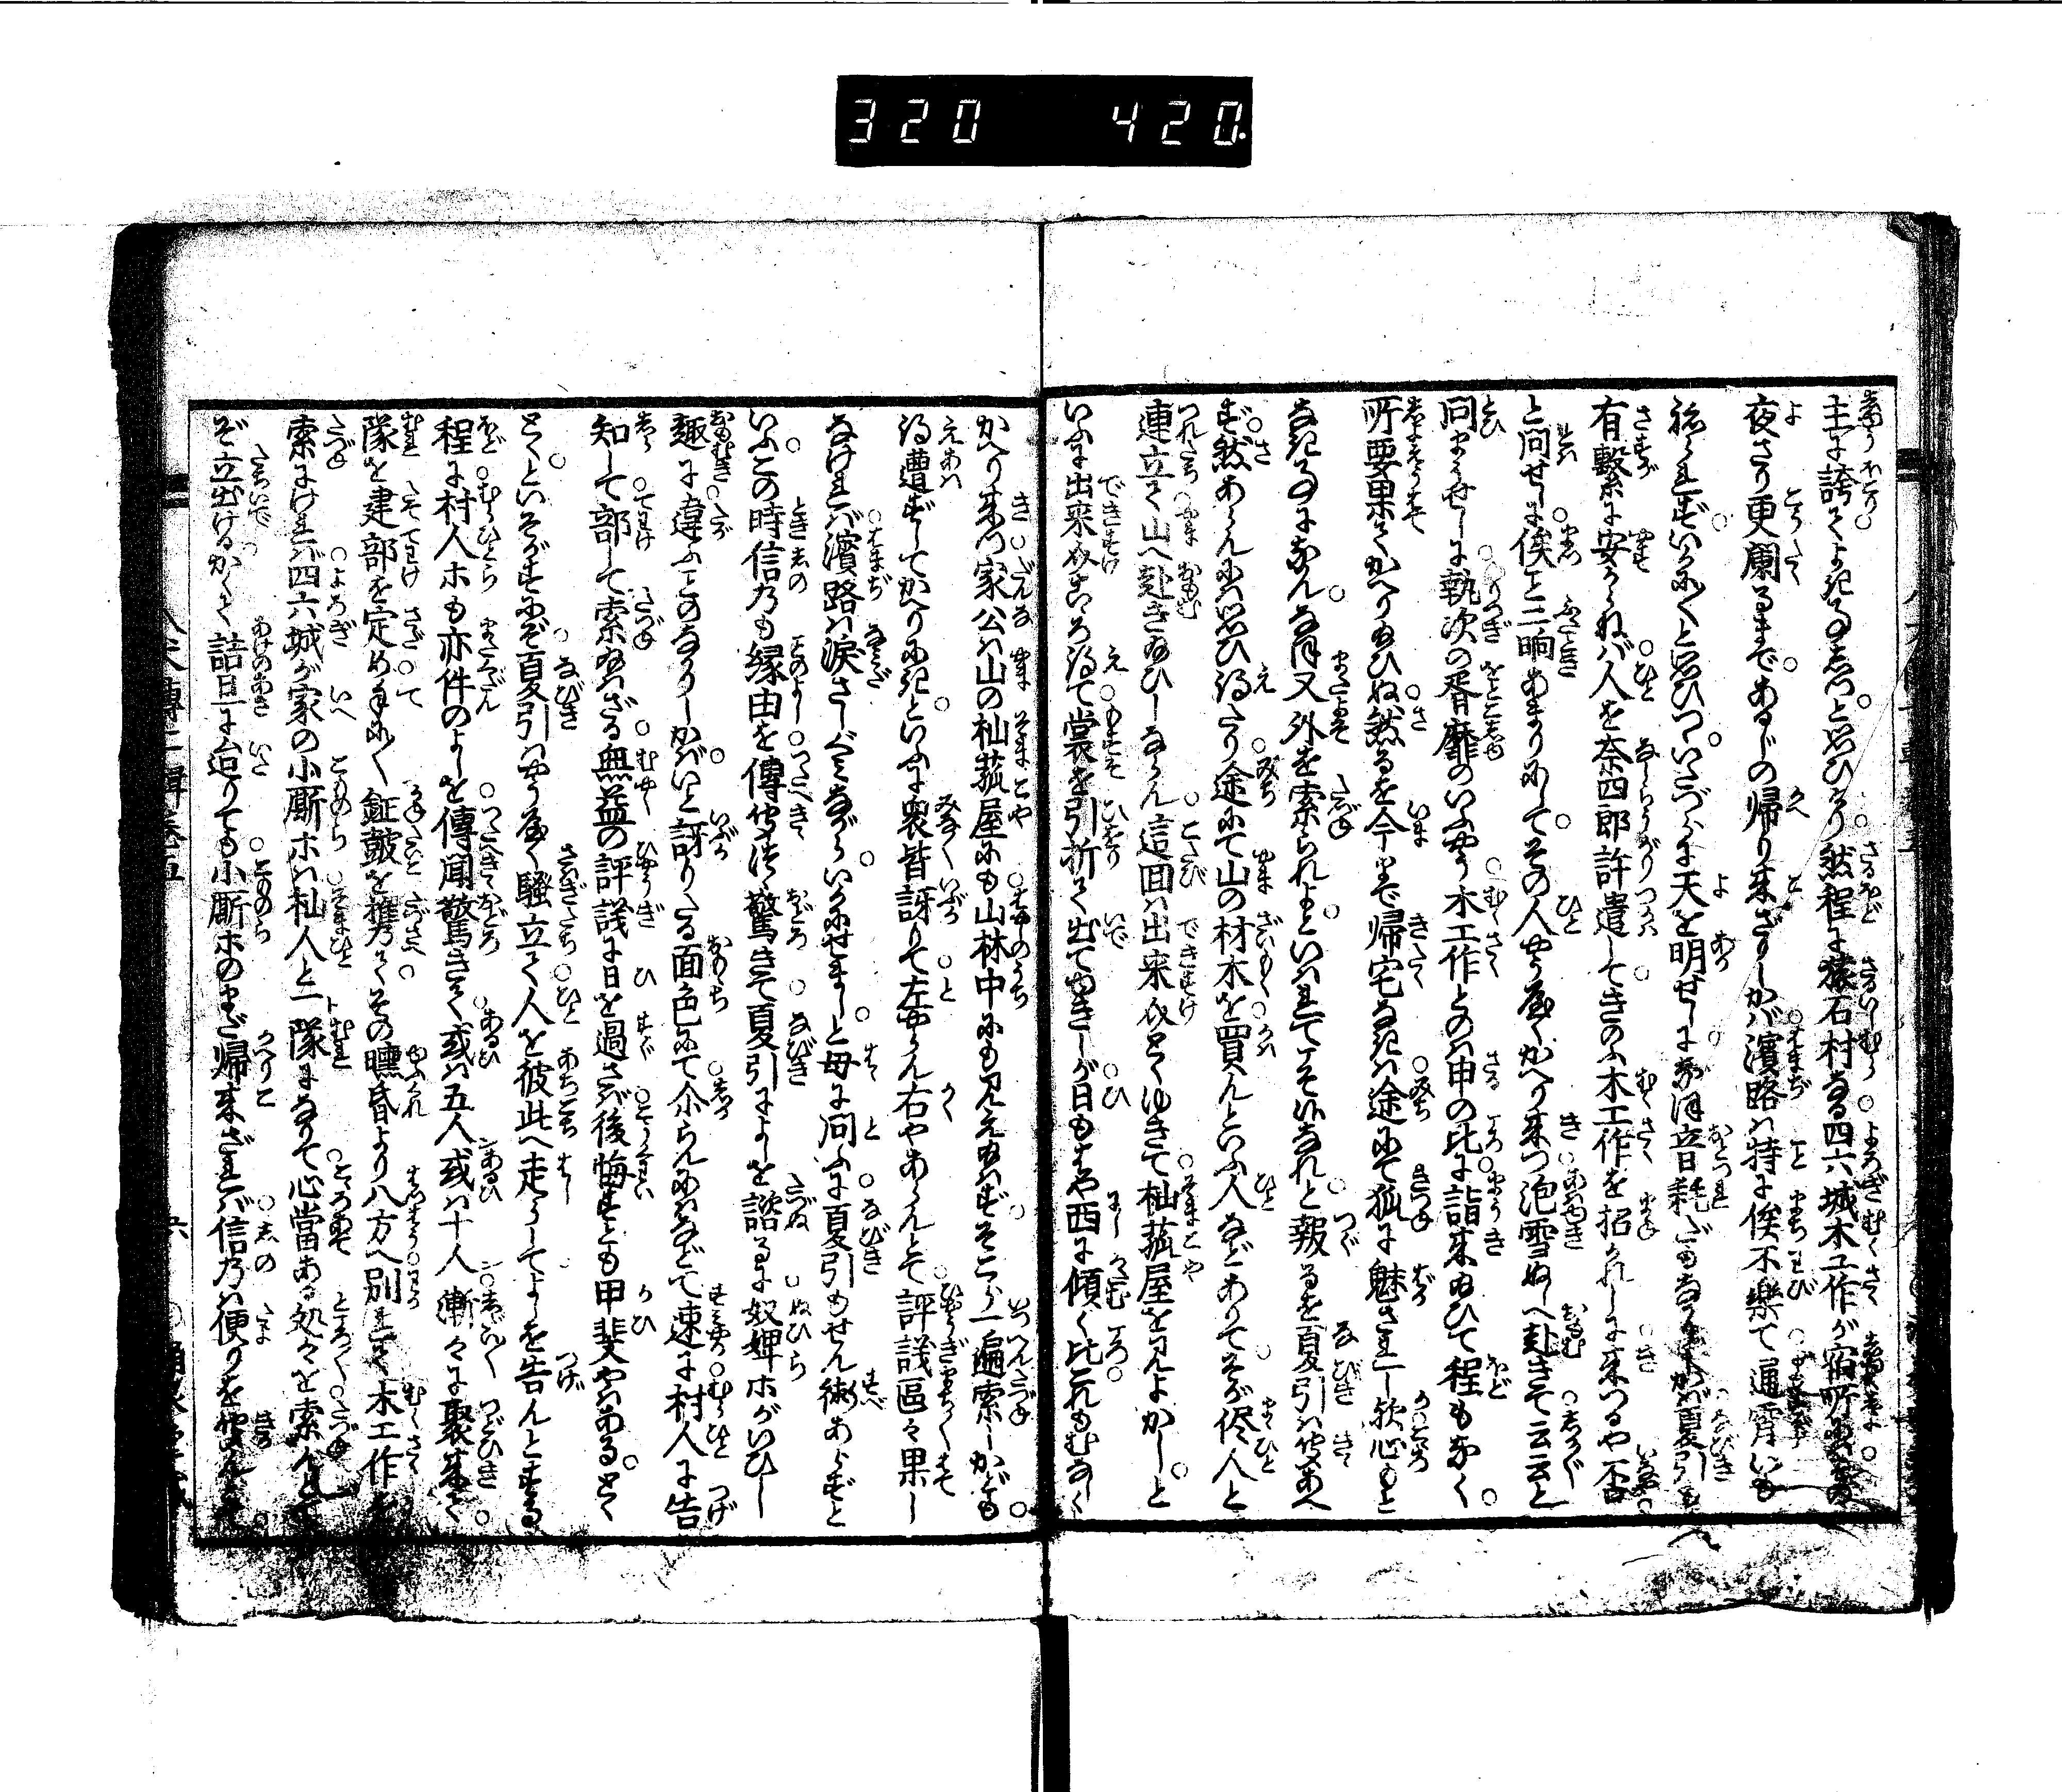 320 420
主に誇てよき事しつと思ひけり然程に猿石村なる四六城木工作が宿所には
夜さり更闌るまであるじの帰り来ざりしかば濱路は特に俟不樂て通宵いも
ねられずいかに〳〵と思ひつゝいたづらに天を明せしになほ音耗だもなかりしかば夏引も
有繋に安からねば人を奈四郎許遣してきのふ木工作を招かれしに来つるや否
と問せしに俟こと二晌あまりにしてその人やうやくかへり来つ泡雪ぬしへ赴きて云云と
問まゐらせしに執次の胥靡のいふやう木工作とのは申の比に詣来給ひて程もなく
所要果てかへり給ひぬ然るを今まで帰宅なきは途にて狐に魅されし歟心もと
なき事になんなほ又外を索られよといはれてこそ候なれと報るを夏引は聞あへ
ず然あらんには思ひ得たり途にて山の材木を買んといふ人などありてそが侭人と
連立て山へ赴き給ひしならん這回は出来介とくゆきて杣菰屋を見よかしと
いふに出来介こゝろ得て裳を引折て出てゆきしが日もはや西に傾く比これもむなしく
かへり来つ家公は山の杣菰屋にも山林中にも見え給はずそこら一遍索しかども
得遭ずしてかへりにきといふに衆皆訝りて左やらん右やあらんとて評議區々果し
なければ濱路は涙さしぐみながらいかにせましと母に問ふに夏引もせん術あらずと
いふこの時信乃も縁由を傳聞つゝ驚きて夏引によしを諮るに奴婢ホがいひし
趣に違ふことのなかりしかばいと訝りたる面色にて尓らんにはなどて速に村人に告
知して部して索給はざる無益の評議に日を過さば後悔すとも甲斐やはある
とく〳〵といそがすにぞ夏引はやうやく騒立て人を彼此へ走らしてよしを告んとする
程に村人ホも亦件のよしを傳聞驚きて或は五人或は十人漸々に聚来て
隊を建部を定め手に〳〵鉦皷を携てその曛昏より八方へ別れて木工作を
索にけれは四六城が家の小厮ホは杣人と一隊になりて心當ある処々を索んとて
ぞ立出けるかくて詰旦に迨りても小厮ホのまだ帰来ざれば信乃は便りを